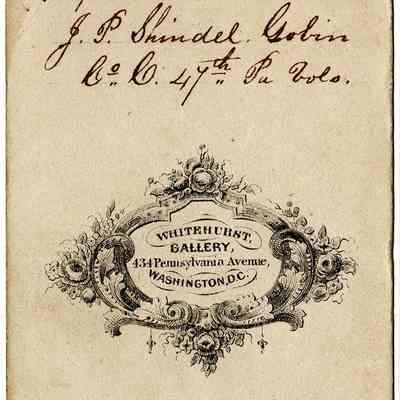 J. P. Shindel. Gobin
Co. C. 47th Pa Vols.
WHITEHURST,
GALLERY,
434 Pennsylvania Avenue,
WASHINGTON, D.C.